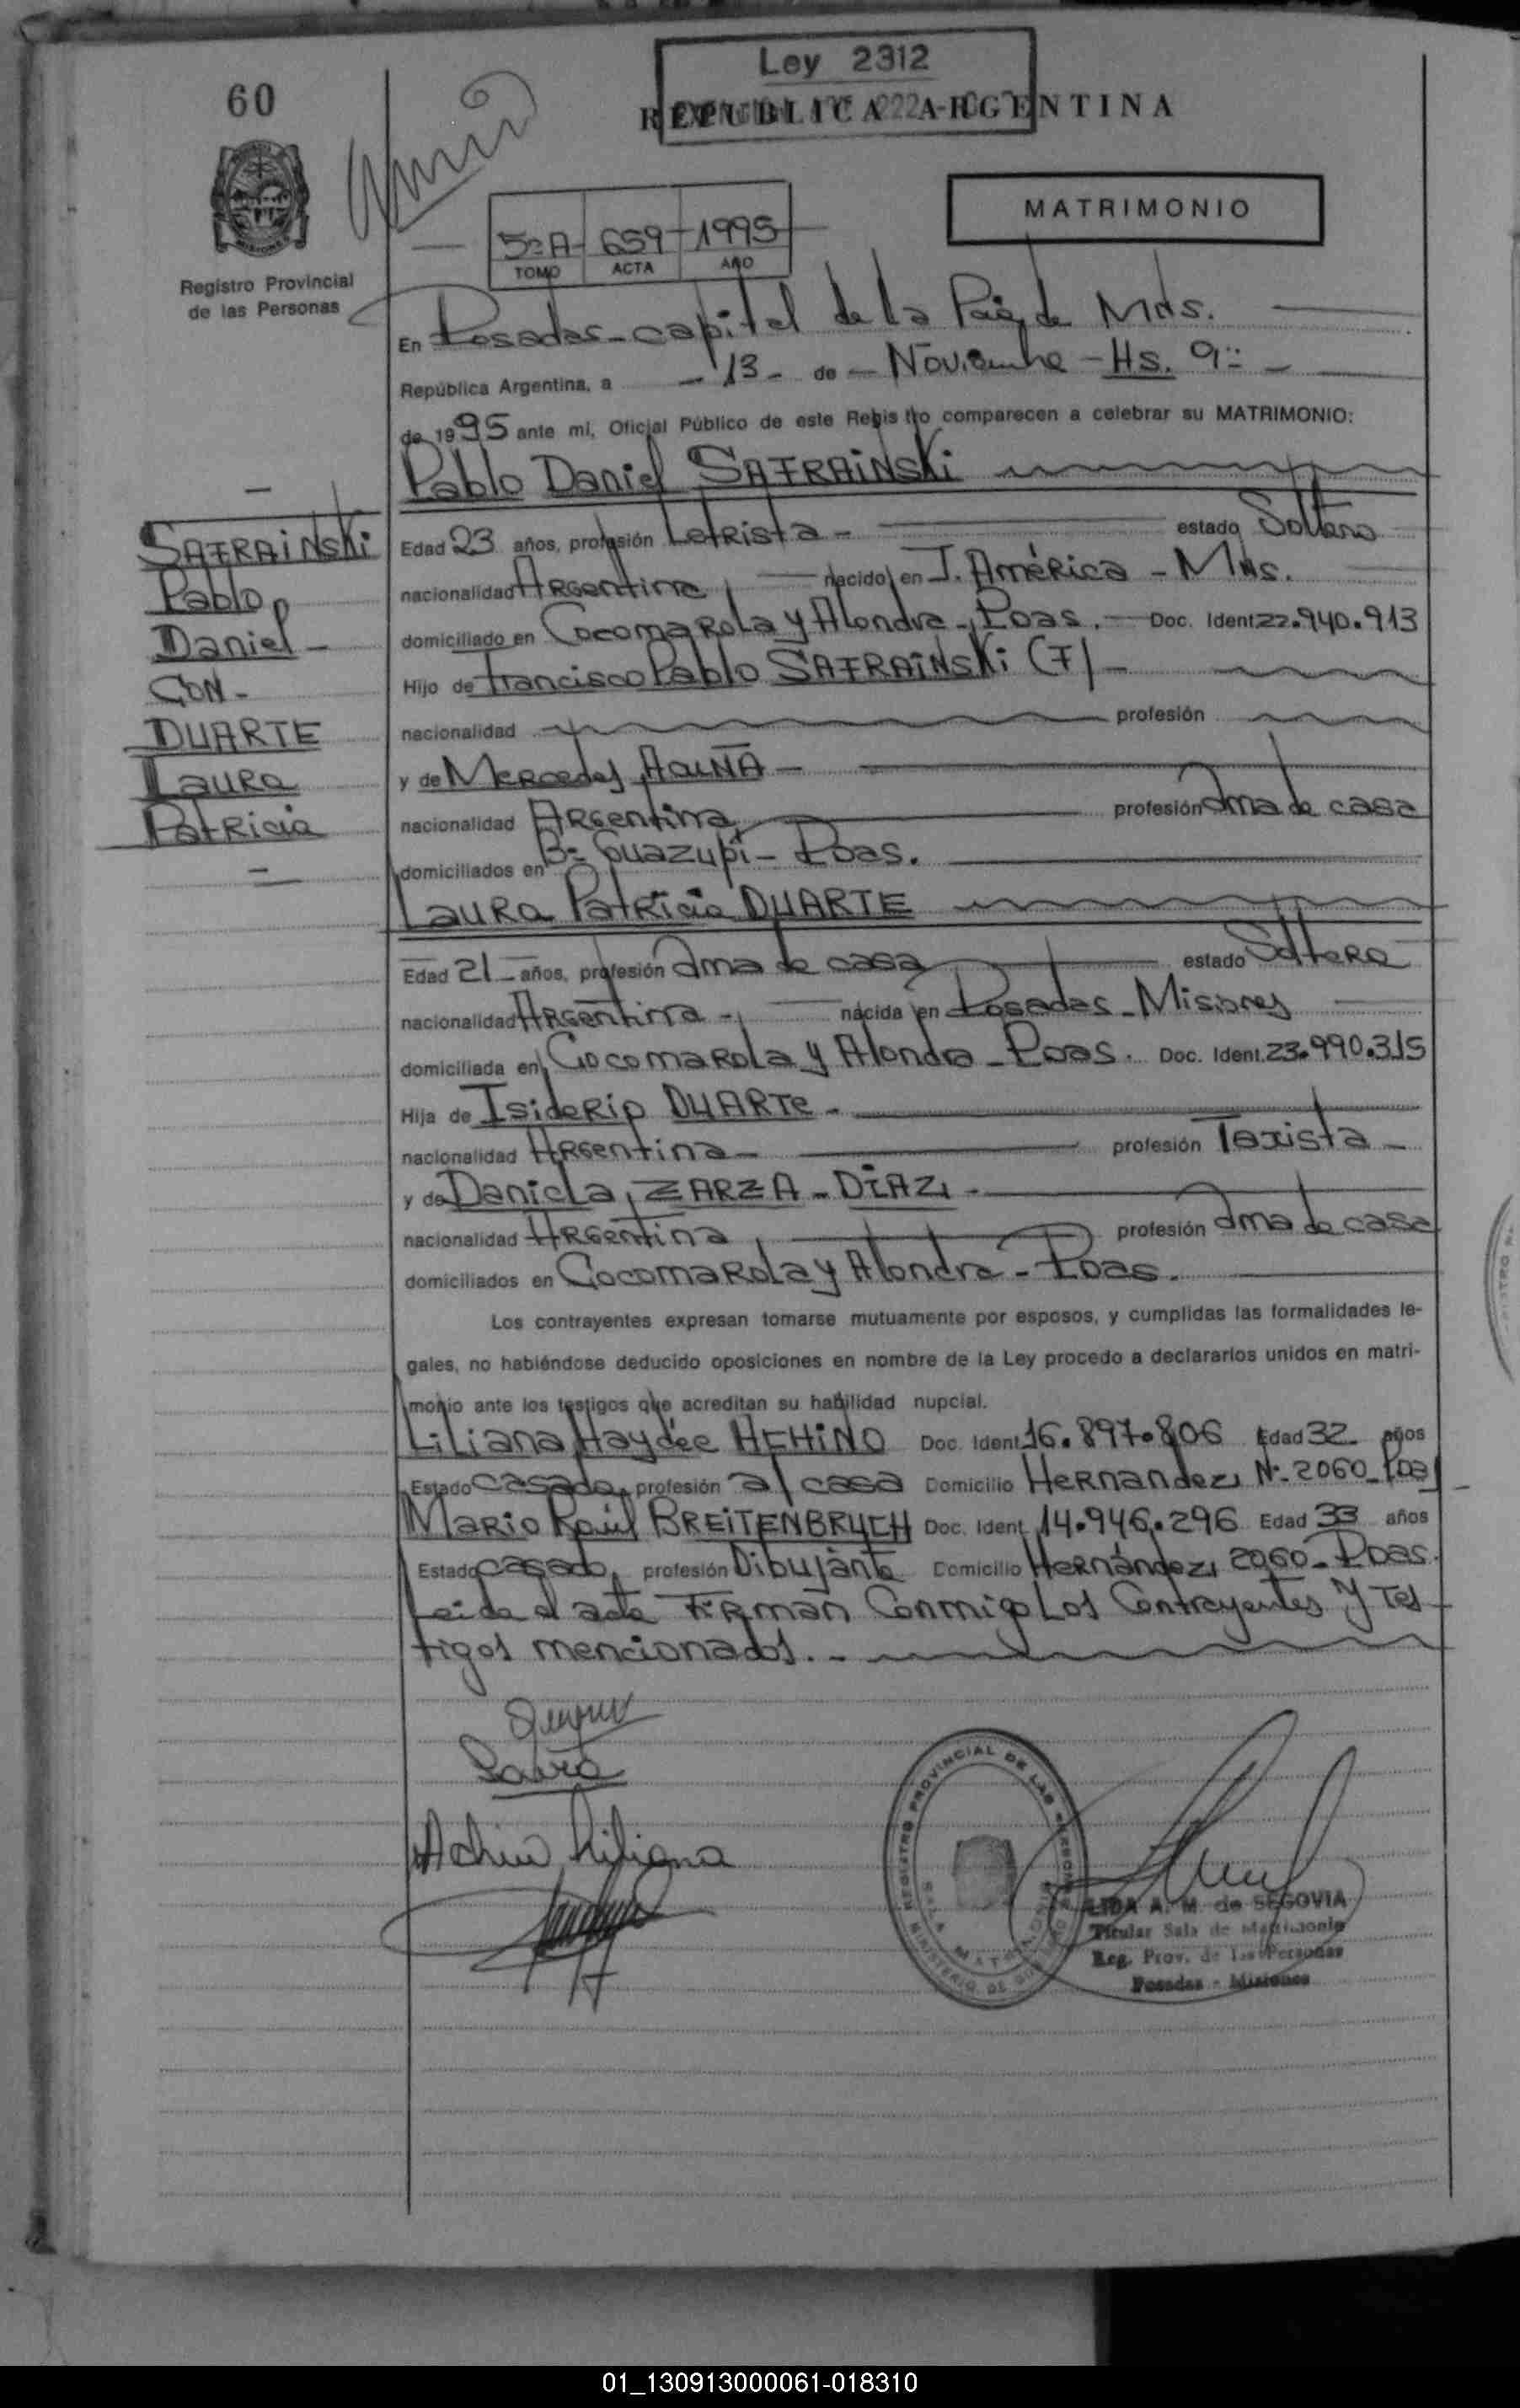 Ley 2312
60
REPUBLICA ARGENTINA
MATRIMONIO
5º A - 659 - 1995
TOMO ACTA AÑO
Registro Provincial
de las Personas
En Posadas - capital de la Pcia. de Mns.
República Argentina, a - 13 - de - Noviembre - Hs. 9
de 1995 ante mí, Oficial Público de este Registro comparecen a celebrar su MATRIMONIO:
Pablo Daniel SAFRAINSKI
SAFRAINSKI
Pablo
Daniel -
CON -
DUARTE
Laura
Patricia
Edad 23 años, profesión Letrista - estado Soltero
nacionalidad Argentina, nacido en J. América - Mns.
domiciliado en Cocomarola y Alondra - Poas. - Doc. Ident 22.940.913
Hijo de Francisco Pablo SAFRAINSKI (F) -
nacionalidad profesión
y de Mercedes, ACUÑA -
nacionalidad Argentina, profesión Ama de casa
domiciliados en Bº Guazupi - Poas.
Laura Patricia DUARTE
Edad 21 - años, profesión Ama de casa estado Soltera
nacionalidad Argentina -, nacida en Posadas - Misiones
domiciliada en Cocomarola y Alondra - Poas. Doc. Ident. 23.990.315
Hija de Isiderio DUARTE -
nacionalidad Argentina - profesión Taxista -
y de Daniela, ZARZA - DIAZ -
nacionalidad Argentina, profesión Ama de casa
domiciliados en Cocomarola y Alondra - Poas.
Los contrayentes expresan tomarse mutuamente por esposos, y cumplidas las formalidades le-
gales, no habiéndose deducido oposiciones en nombre de la Ley procedo a declararlos unidos en matri-
monio ante los testigos que acreditan su habilidad nupcial.
Liliana Haydée ACHINO Doc. Ident 16.897.806 Edad 32 años
Estado Casada, profesión a/casa Domicilio Hernandez, Nº 2060 - Poas
Mario Raúl BREITENBRUCH Doc. Ident. 14.946.296 Edad 33 años
Estado casado, profesión Dibujante Domicilio Hernández, 2060 - Poas.
Leida el acta Firman Conmigo Los Contrayentes y Tes-
tigos mencionados. -
Laura
Achino Liliana
REGISTRO PROVINCIAL DE LAS PERSONAS
SALA MATRIMONIO
MINISTERIO DE GOBIERNO
LIDA A. M. de SEGOVIA
Titular Sala de Matrimonio
Reg. Prov. de las Personas
Posadas - Misiones
01_130913000061-018310